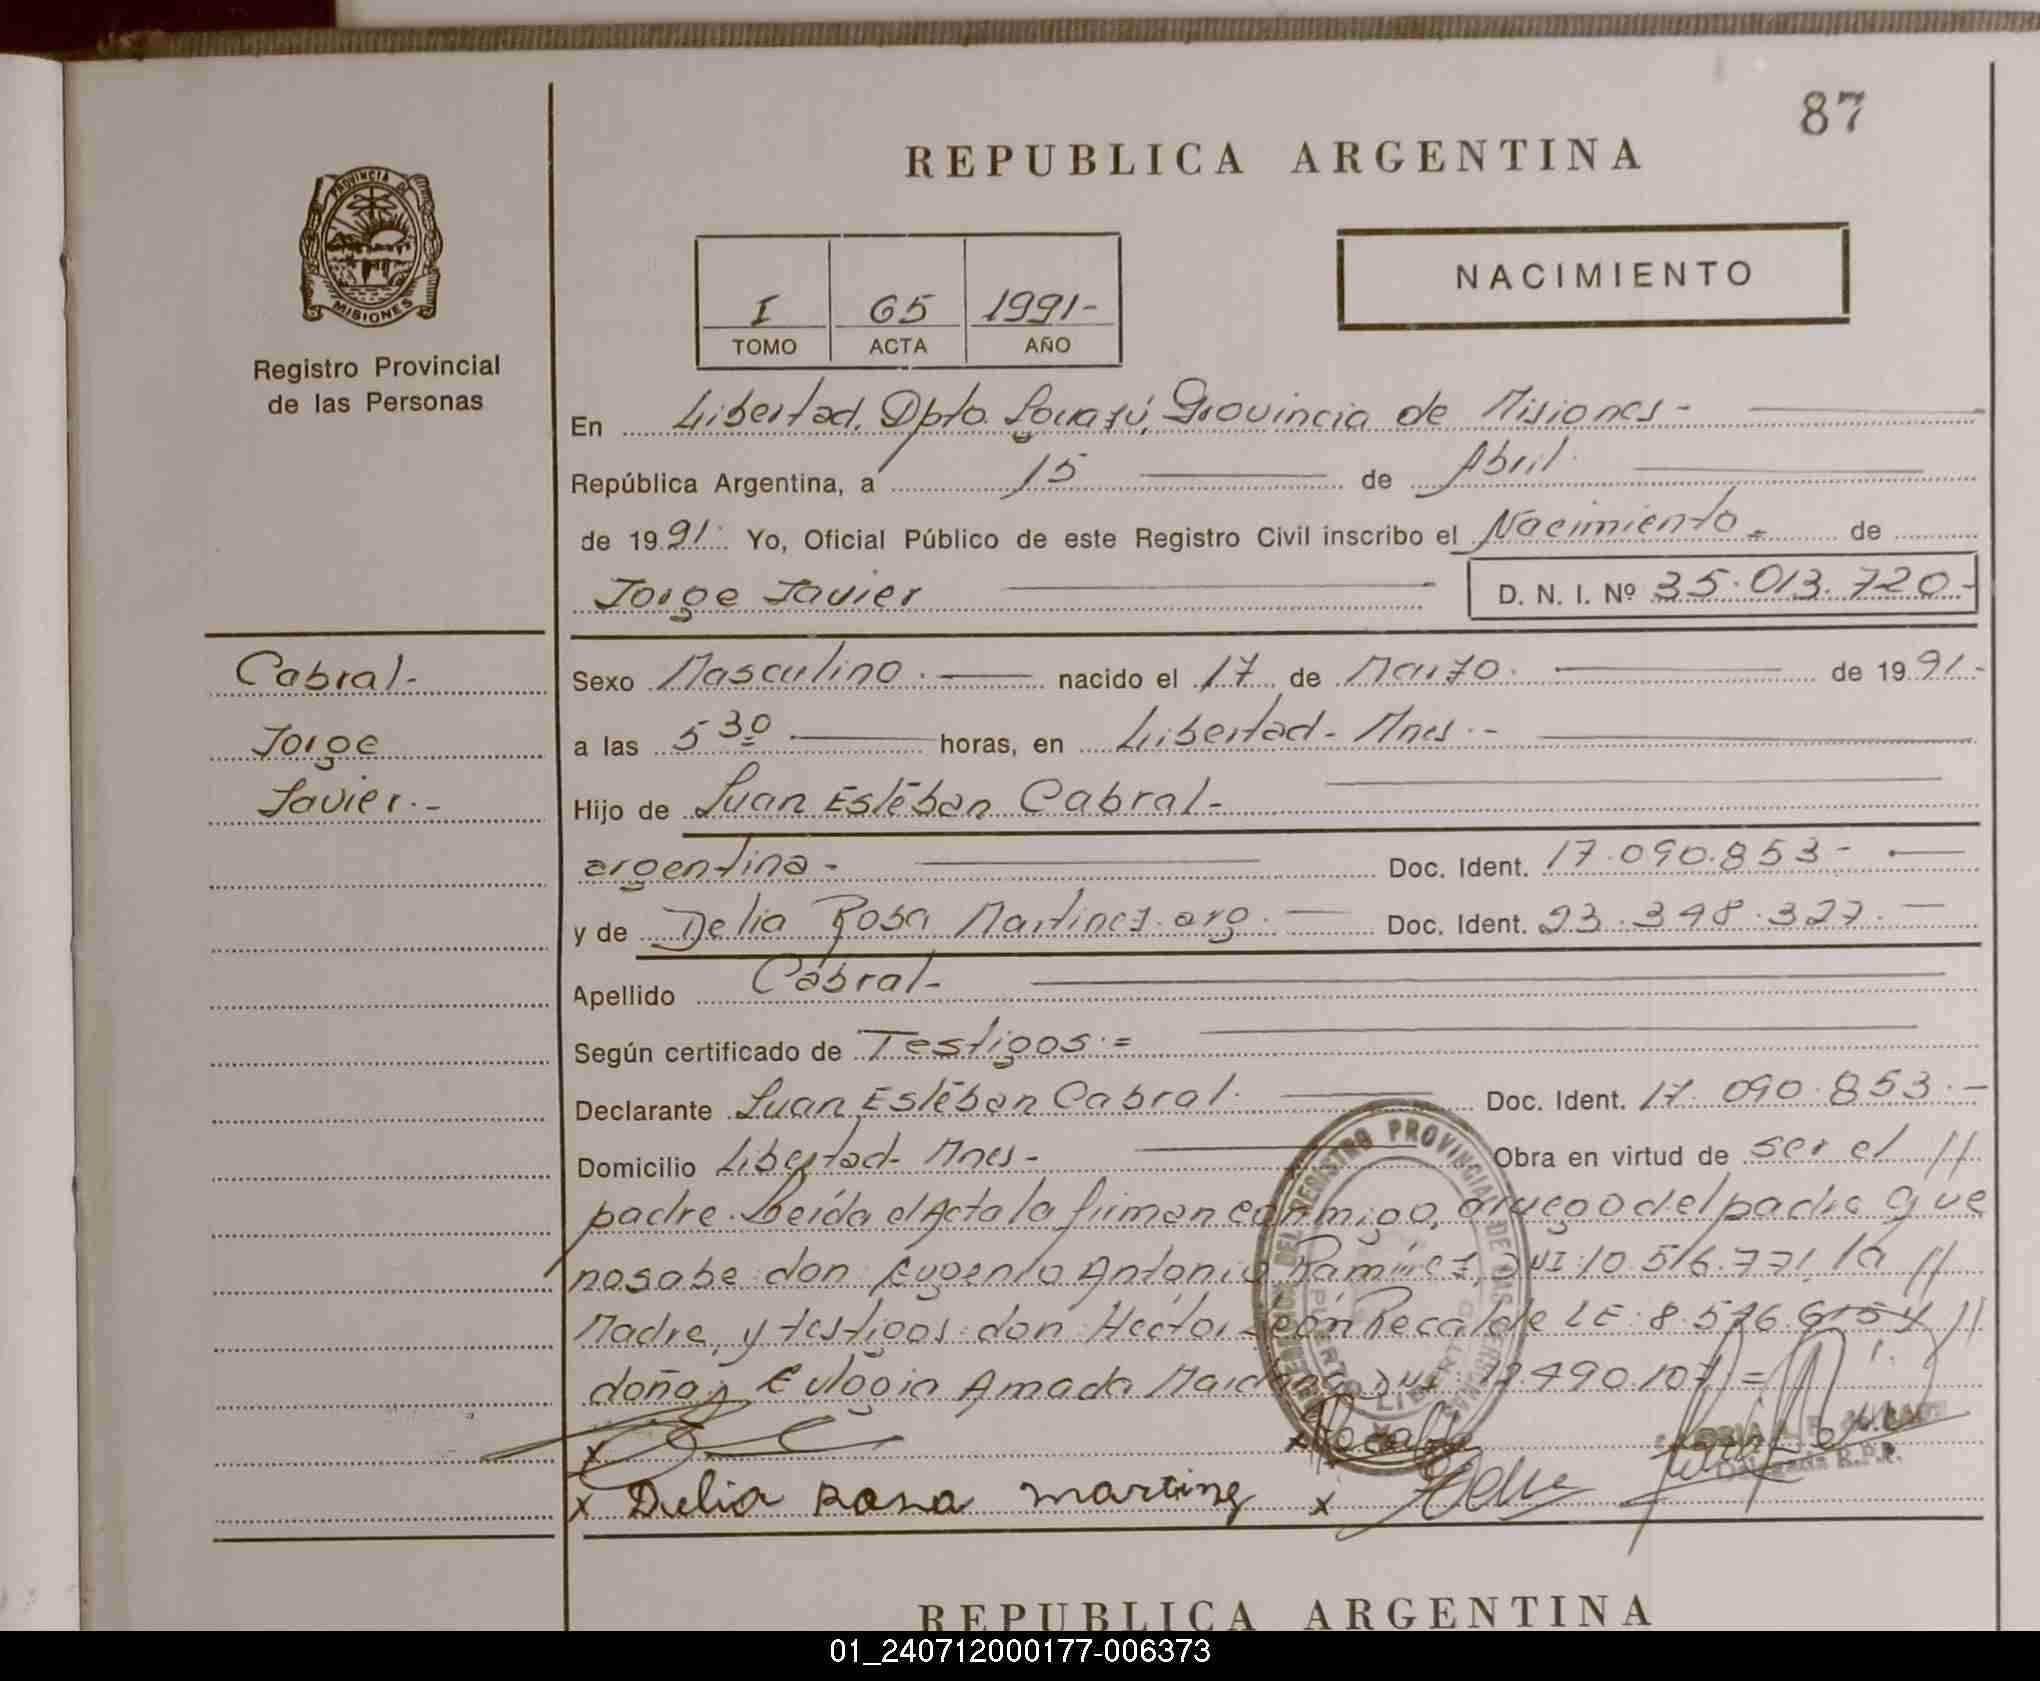 87
REPUBLICA ARGENTINA
PROVINCIA DE
MISIONES
Registro Provincial
de las Personas
NACIMIENTO
I 65 1991-
TOMO ACTA AÑO
En Libertad, Dpto. Iguazú, Provincia de Misiones-
República Argentina, a 15 de Abril
de 1991. Yo, Oficial Público de este Registro Civil inscribo el Nacimiento de
Jorge Javier D. N. I. Nº 35.013.720-
Cabral-
Jorge
Javier.-
Sexo Masculino. nacido el 17 de Marzo. de 1991.-
a las 5 30 horas, en Libertad- Mnes.-
Hijo de Juan Estéban Cabral-
argentina- Doc. Ident. 17.090.853-
y de Delia Rosa Martinez. arg. Doc. Ident. 23.348.327.
Apellido Cabral-
Según certificado de Testigos.=
Declarante Juan Estéban Cabral. Doc. Ident. 17.090.853.-
Domicilio Libertad- Mnes- Obra en virtud de ser el //
padre. Leída el Acta la firman conmigo, a ruego del padre que
no sabe don Eugenio Antonio Ramírez, DNI:10.516.771, la //
Madre, y testigos don Hector León Recalde LE: 8.576.615 y //
doña Eulogia Amada DNI 12490.107=
REGISTRO PROVINCIAL DE LAS PERSONAS
PUERTO LIBERTAD
x x Recalde
Delegada R.P.P.
x Delia Rosa martinz x
REPUBLICA ARGENTINA
01_240712000177-006373